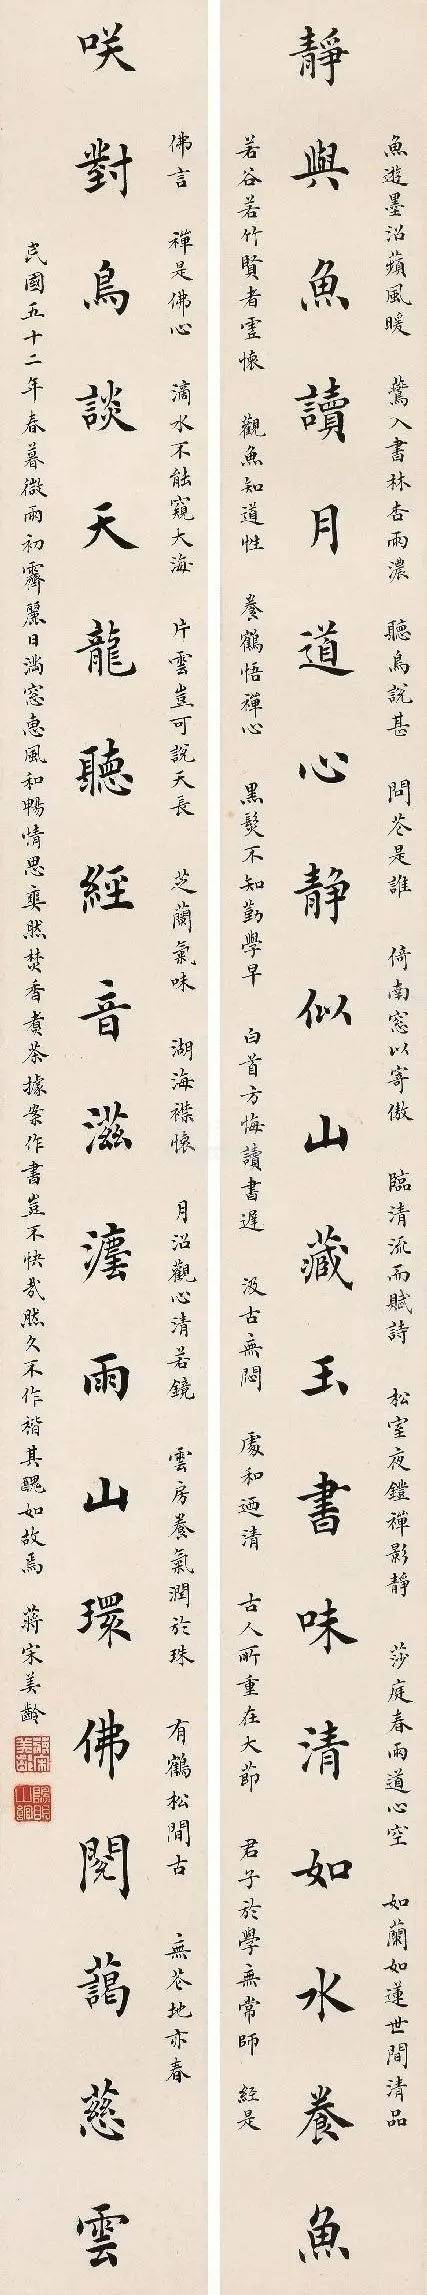 魚遊墨沼蘋風暖 鶯入書林杏雨濃 聽鳥說甚 問花是誰 倚南窓以寄傲 臨清流而賦詩 松室夜鐙禪影靜 莎庭春雨道心空 如蘭如蓮世間清品
靜與魚讀月道心靜似山藏玉書味清如水養魚
若谷若竹賢者虛懷 觀魚知道性 養鶴悟禪心 黑髮不知勤學早 白首方悔讀書遲 汲古無悶 處和迺清 古人所重在大節 君子於學無常師 經是
佛言 禪是佛心 滴水不能窺大海 片雲豈可說天長 芝蘭氣味 湖海襟懷 月沼觀心清若鏡 雲房養氣潤於珠 有鶴松間古 無花地亦春
咲對鳥談天龍聽經音滋灋雨山環佛閣藹慈雲
民國五十二年春暮微雨初霽麗日滿窓惠風和暢情思奕然焚香煮茶據案作書豈不快哉然久不作楷其醜如故焉 蔣宋美齡